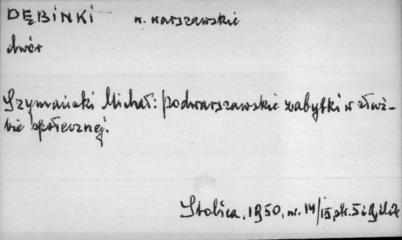 DĘBINKI w. warszawskie
dwór
Szymański Michał: podwarszawskie zabytki w służ-
bie społecznej.
Stolica, 1950, nr. 14/15, str. 5